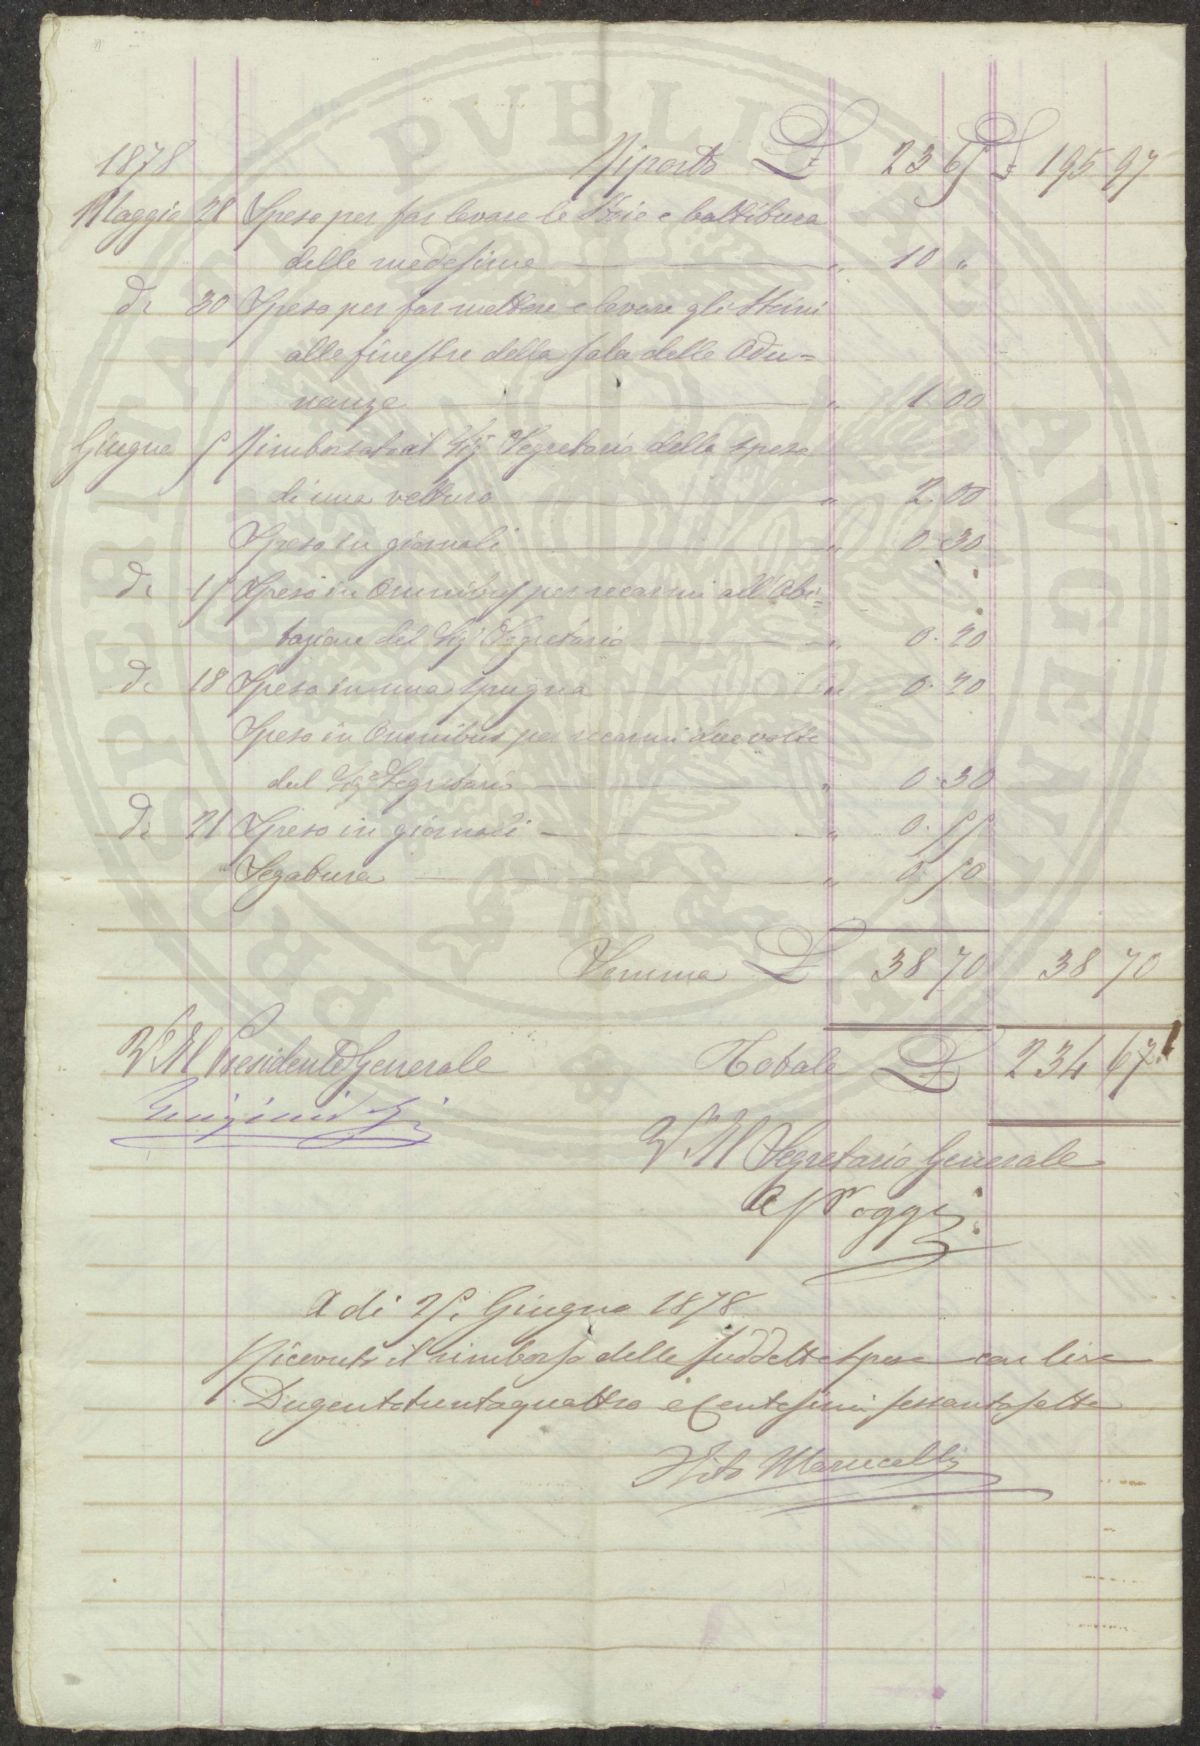 PROSPERITATI PVBLICAE AVGENDAE
1878 Riporto L 23 65 L 195 97
Maggio 28 Spesa per far levare le Stoie e battitura
delle medesime " 10 "
Do 30 Spesa per far mettere e levare gli Stoini
alle finestre della sala delle Adu=
nanze " 1.00
Giugno 5 Rimborsato al Sig Segretario della spesa
di una vettura " 2.00
Spesa in giornali " 0.30
Do 15 Spesa in Omnibus per recarmi all'Abi=
tazione del Sig Segretario " 0.20
Do 18 Spesa in una spugna " 0.20
Spesa in Omnibus per recarmi due volte
dal Sigr Segretario " 0.30
Do 21 Spesa in giornali " 0.55
Segatura " 0.50
Somma L 38 70 38 70
Vo Il Presidente Generale Totale L 234 67.
Vo Il Segretario Generale
Poggi
A di 25. Giugno 1878
Ricevuto il rimborso delle suddette spese con lire
Dugentotrentaquattro e Centesimi sessantasette
Vito Marucelli